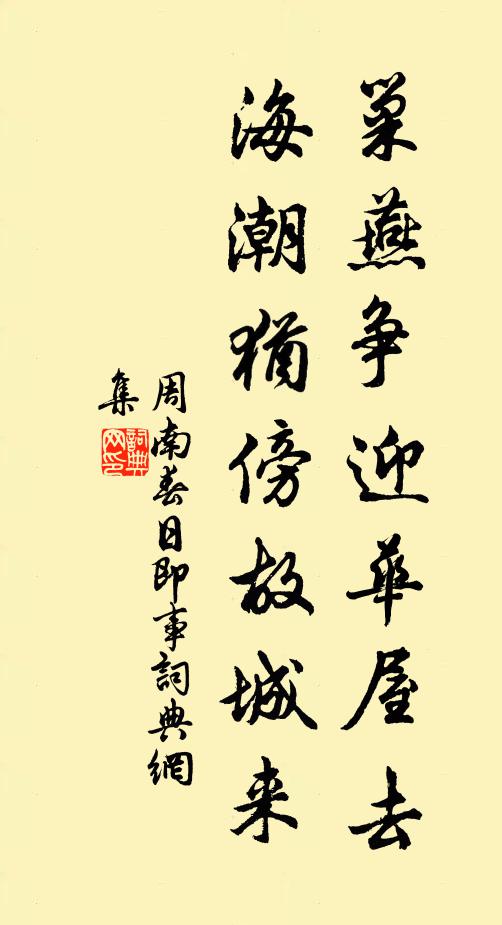 巢燕争迎华屋去
海潮猶傍故城来
周南春日即事詞典網
集
詞典
网印